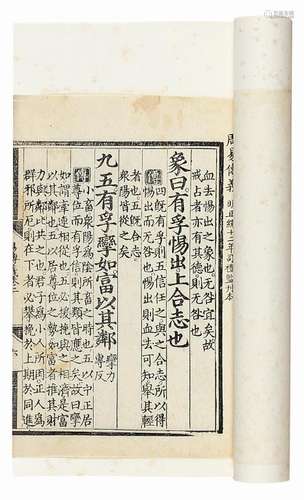 周易傳義 明正統十二年司禮監刊本
血去惕出之象也无咎宜矣故
戒占者亦有其德則无咎也
象曰有孚惕出上合志也
傳四既有孚五信任之與之合志所以得
惕出而无咎也惕出則血去可知舉其輕
者也五既合志
眾陽皆從之矣
九五有孚攣如富以其鄰 攣力專反
傳小畜眾陽為陰所畜之時也五以中正居
尊位而有孚信則其類皆應之矣故曰攣
如謂牽連相從也五必援挽與之相濟是富
以其鄰也五以居尊位之勢如富者推其財
力與鄰比共之也君子為小人所困正人為
群邪所厄則在下者必攀挽於上期於同進